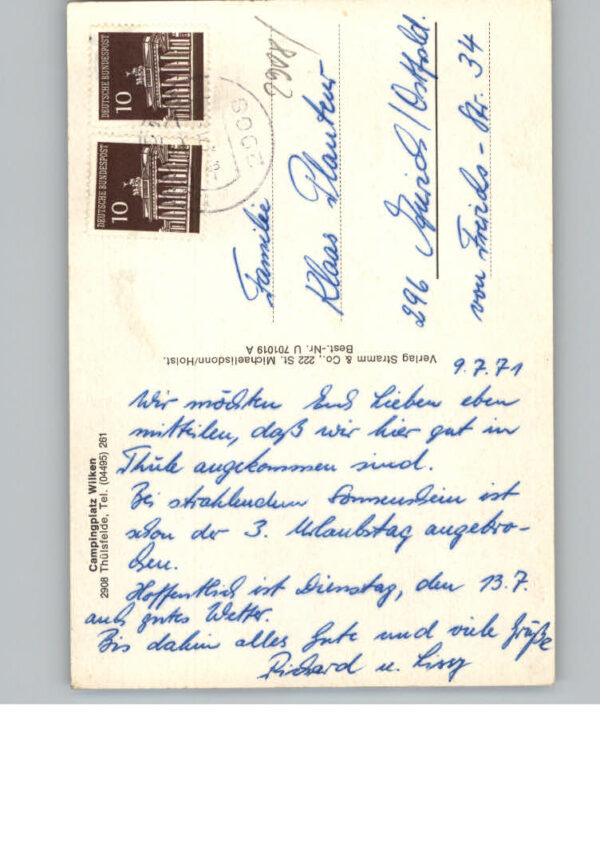 DEUTSCHE BUNDESPOST
10
DEUTSCHE BUNDESPOST
10
18062
Familie
Klaas
296 Aurich/Ostfrld.
von Frerichs-Str. 34
Verlag Stramm & Co., 222 St. Michaelisdonn/Holst.
Best.-Nr. U 701019 A
Campingplatz Wilken
2908 Thülsfelde, Tel. (04495) 261
9.7.71
Wir möchten Euch Lieben eben
mitteilen, daß wir hier gut in
Thüle angekommen sind.
Bei strahlendem Sonnenschein ist
schon der 3. Urlaubstag angebro-
chen.
Hoffentlich ist Dienstag, den 13.7.
auch gutes Wetter.
Bis dahin alles Gute und viele Grüße
Richard u. Lissy